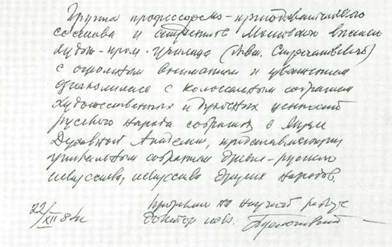 Группа профессорско-преподавательского
состава и студентов Московского высшего
худож.-пром. училища (бывш. Строгановского)
с огромным вниманием и уважением
ознакомилась с колоссальным собранием
художественных и духовных ценностей
русского народа собранных в Музее
Духовной Академии, представляющих
уникальное собрание древне-русского
искусства, искусства других народов.
Проректор по научной работе
22/XII 84г. доктор иск.